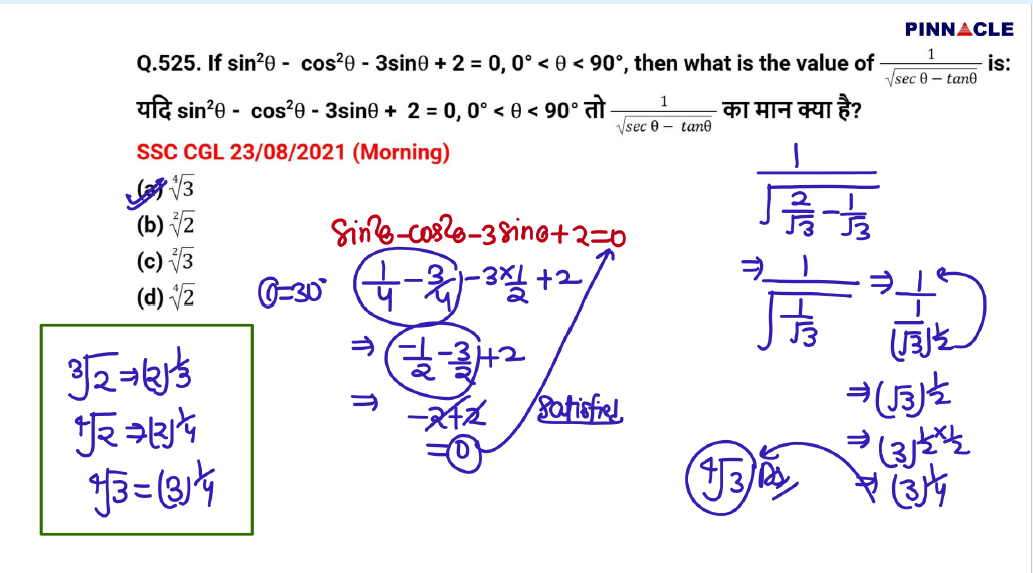 PINNACLE
Q.525. If sin²θ - cos²θ - 3sinθ + 2 = 0, 0° < θ < 90°, then what is the value of 1/√(sec θ − tanθ) is:
यदि sin²θ - cos²θ - 3sinθ + 2 = 0, 0° < θ < 90° तो 1/√(sec θ − tanθ) का मान क्या है?
SSC CGL 23/08/2021 (Morning)
(a) ∜3
(b) ²√2
(c) ²√3
(d) ∜2
θ=30°
sin²θ-cos²θ-3sinθ+2=0
(1/4 - 3/4) - 3×1/2 + 2
⇒ (-1/2 - 3/2) + 2
⇒ -2+2
=0
satisfied
³√2 ⇒ (2)^1/3
⁴√2 ⇒ (2)^1/4
⁴√3 = (3)^1/4
1/√(2/√3 - 1/√3)
⇒ 1/√(1/√3) ⇒ 1/(1/(√3)^1/2)
⇒ (√3)^1/2
⇒ (3)^1/2×1/2
⇒ (3)^1/4
⁴√3 Ans